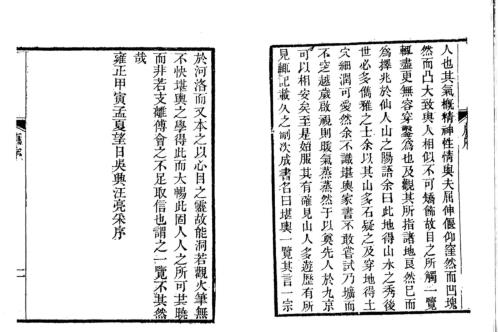 人也其氣概精神性情與夫屈伸偃仰窪然而凹塊
然而凸大致與人相似不可矯揉故目之所觸一覽
輒盡更無容穿鑿為也及觀其所指諸地艮然巳而
為擇兆於仙人山之腸語余曰此地得山水之秀後
世必多儒雅之士余以其山多石疑之及穿地得土
穴細潤可愛然余不識堪輿家書不敢嘗試乃壙而
不窆越歲啟視則暖氣蒸蒸然于以奠先人於九京
可以相安矣至是始服其有確見山人多遊歷有所
見輒記載久之副次成書名曰堪輿一覽其言一宗
於河洛而又本之以心目之靈故能洞若觀火筆無
不快堪輿之學得此而大暢此固人人之所可共曉
而非若支離傅會之不足取信也謂之一覽不其然
哉
雍正甲寅孟夏望日吳興汪亮采序